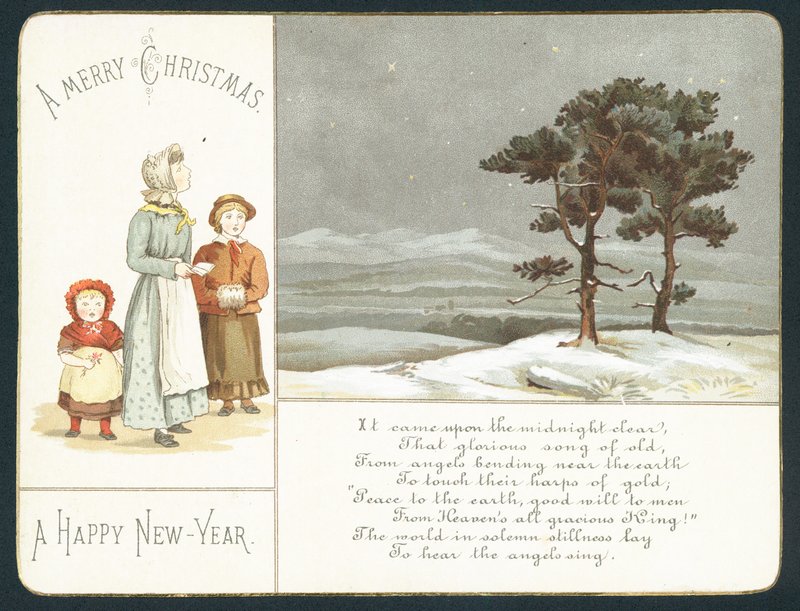 A MERRY CHRISTMAS.
A HAPPY NEW-YEAR.
It came upon the midnight clear,
That glorious song of old,
From angels bending near the earth
To touch their harps of gold;
"Peace to the earth, good will to men
From Heaven's all gracious King!"
The world in solemn stillness lay
To hear the angels sing.